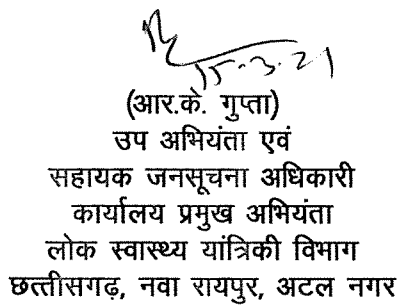 15-3-21
(आर.के. गुप्ता)
उप अभियंता एवं
सहायक जनसूचना अधिकारी
कार्यालय प्रमुख अभियंता
लोक स्वास्थ्य यांत्रिकी विभाग
छत्तीसगढ़, नवा रायपुर, अटल नगर